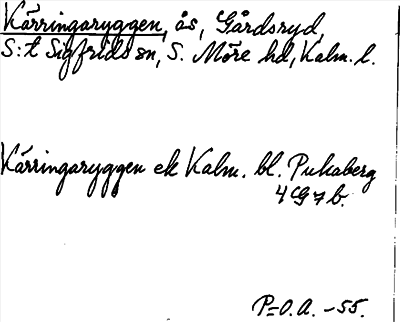 Kärringaryggen, ås, Gårdsryd,
S:t Sigfrids sn, S. Möre hd, Kalm. l.
Kärringaryggen ek Kalm. bl. Pukaberg
4G7b.
P=O.A. -55.